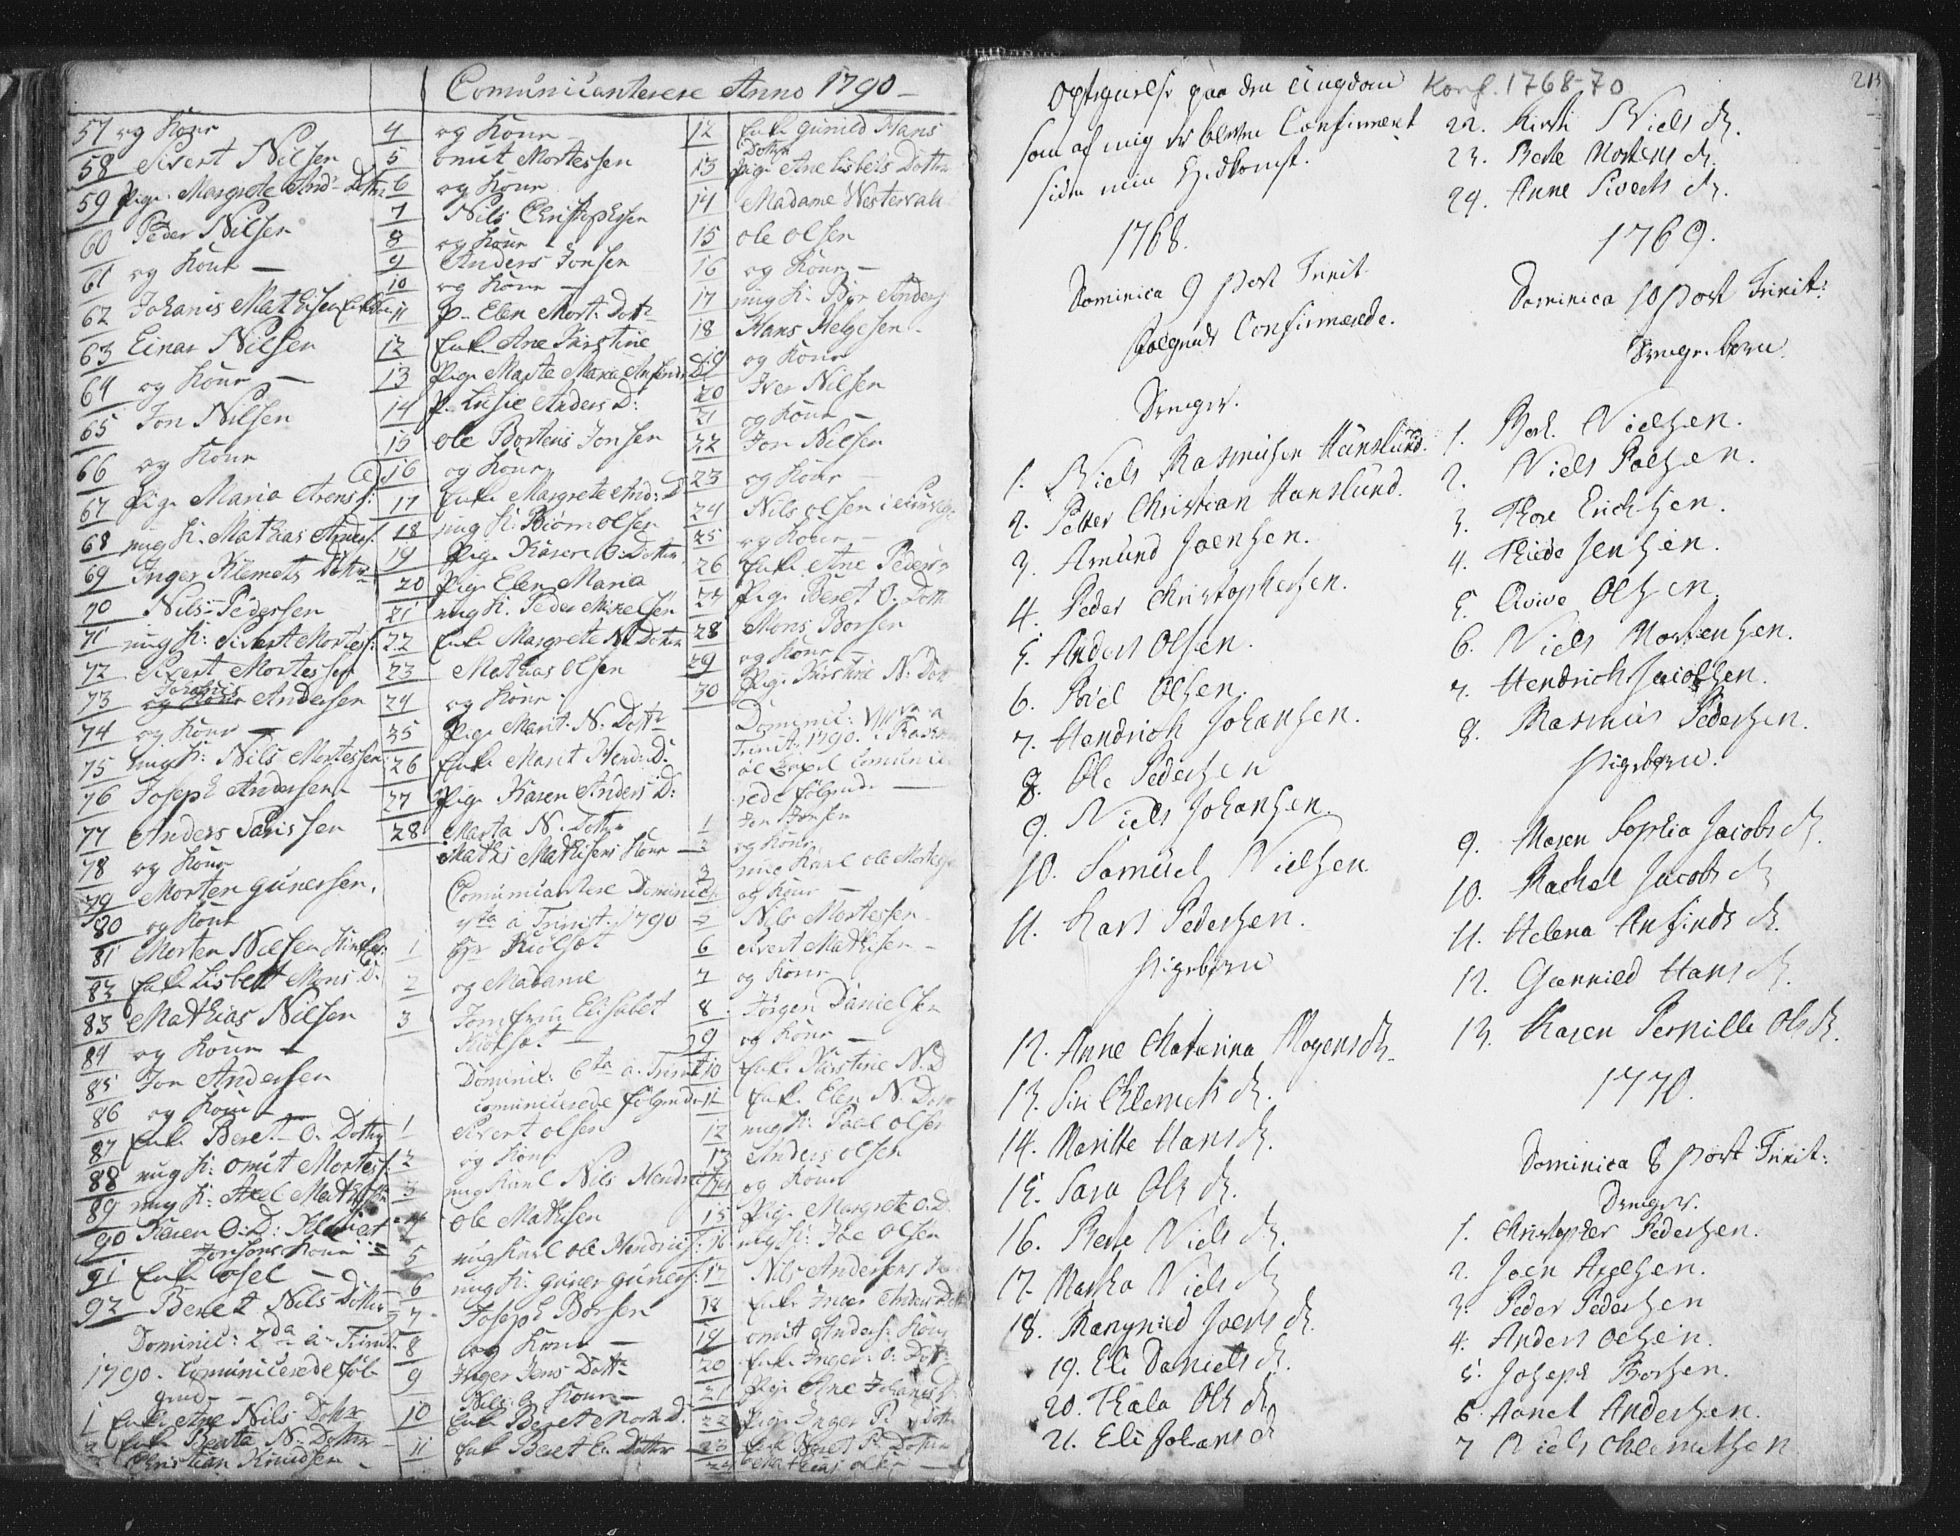 Comunicanterere Anno 1790
57 og Kone
58 Sivert Nilsen
59 Pige Margrete And: Dotter
60 Peder Nilsen
61 og Kone
62 Johanis Mathisen
63 Einar Nilsen
64 og Kone
65 Jon Nilsen
66 og Kone
67 Pige Maria Arens D:
68 ung K. Mathias Anders:
69 Inger Klemets Dotter
70 Nils Pedersen
71 ung K: Sivert Mortess:
72 Sivert Mortessen
73 Johanis Andersen
74 og Kone
75 ung K: Nils Mortessen
76 Joseph Andersen
77 Anders
78 og Kone
79 Morten Gunersen
80 og Kone
81 Morten Nilsen
82 Enke Lisbett Mons D:
83 Mathias Nilsen
84 og Kone
85 Jon Andersen
86 og Kone
87 Enke Beret O: Dotter
88 ung K: omut Mortess:
89 ung K: Axel
90 Karen O: D:
Jonsens Kone
91 Enke osel
92 Beret Nils Dotter
Dominic: 2da a Trinit:
1790 Comunicerede føl
gende
1 Enke Ane Nils Dotter
2 Enke Berta N: Dotter
Christian Knudsen
4 og Kone
5 omut Mortessen
6 og Kone
7 Nils Christophersen
8 og Kone
9 Anders Jonsen
10 og Kone
11 P. Elen Mort: Dott
12 Enke Ane Kirstine
13 Pige Marte Maria
14 P. Lusie Anders D:
15 ole Bortens Jonsen
16 og Kone
17 Enke Margrete And: D
18 ung K: Biørn olsen
19 Pige Karen O: Dotter
20 Pige Elen Maria
21 ung K: Peder Mikelsen
22 Enke Margrete N: Dotter
23 Mathias olsen
24 og Kone
25 Pige Marit N: Dott
26 Enke Marit Hend: D:
27 Pige Karen Anders D:
28 Marta N: Dotter
Mathis Mathisens Kone
Comunicantere Dominica
4ta a Trinit: 1790
1 Hr
2 og Madame
3 Jomfru Elisabet
Dominic: 6ta a Trinit
Comunicerede følgende
1 Sivert olsen
2 og Kone
3 ung Karl Nils Hendric
4 ole Mathisen
5 ung Karl ole Hendrics:
6 ung K: Guner Guners:
7 Joseph Borsen
8 og Kone
9 Inger Jens Dott
Nils: s Kone
10 Enke Beret Mort: D:
11 Enke Beret E: Dotter
12 Enke Gunild Hans
Dotter
13 Pige Ane Lisbets Dotter
14 Madame
15 ole olsen
16 og Kone
17 ung K: Anders
18 Hans Helgesen
19 og Kone
20 Iver Nilsen
21 og Kone
22 Jon Nilsen
23 og Kone
24 Nils olsen i
25 og Kone
26 Enke Ane Peders
27 Pige Beret O: Dott
28 Mons Borsen
29 og Kone
30 Pige Kirstine N: Dott
Dominic:
Trinit: 1790 i
Capel Comunice
rede følgende
1 Jon Jonsen
2 og Kone
3 ung Karl ole Mortess
og Kone
Nils Mortessen
6 Sivert Mathisen
7 og Kone
8 Jørgen Danielsen
9 og Kone
10 Enke Kirstine N: D
11 Enke Elen N: Dott
12 ung K: Paul olsen
13 Anders olsen
14 og Kone
15 Pige Margrete O: D.
16 ung K: olsen
17 Nils Andersens
18 Enke Inger Anders Dott
19 omut Anders: Kone
20 Enke Inger O: Dott
21 Pige Ane Johanes D:
22 Pige Inger P: Dott
23 Enke Beret P: Dotter
24 Mathias olsen
215
Konf. 1768-70
Optegnelse paa den Ungdom
som af mig er bleven Confirmeret
siden min Hidkomst.
1768.
Dominica 9 post Trinit.
følgende Confirmerede.
Drenger.
1. Niels Rasmusen Hanslund.
2. Petter Christian Hanslund.
3. Amund Joensen.
4. Peder Christophersen.
5. Anders Olsen.
6. Poel Olsen.
7. Hendrich Johansen.
8. Ole Pedersen
9. Niels Johansen.
10. Samuel Nielsen
11. Lars Pedersen.
Pigebørn
12. Anne Chatarina Mogensdr.
13. Siri Clemets dr.
14. Maritte Hans dr.
15. Sara Ols dr.
16. Berte Niels dr.
17. Martha Niels dr
18. Rangnild Joens dr.
19. Eli Daniels dr.
20. Thala Ols dr
21. Eli Johans d
22. Kirsti Niels dr.
23. Berte Mortens dr.
24. Anne Siverts dr.
1769.
Dominica 10 post Trinit:
Drenge børn.
1. Nielsen.
2. Niels Poelsen.
3. Thore Erichsen.
4. Jensen.
5. Olsen.
6. Niels Mortensen.
7. Hendrich Jacobsen.
8. Rasmus Pedersen.
Pigebørn.
9. Maren Sophia Jacobs dr.
10. Rachel Jacobs dr
11. Helena Anfinds dr.
12. Gunnild Hans dr.
13. Karen Pernille Ols dr.
1770.
Dominica 8 post Trinit:
Drenger.
1. Christopher Pedersen.
2. Joen Axelsen.
3. Peder Pedersen
4. Anders Olsen.
5. Joseph Borsen.
6. Andersen.
7. Niels Clemetsen